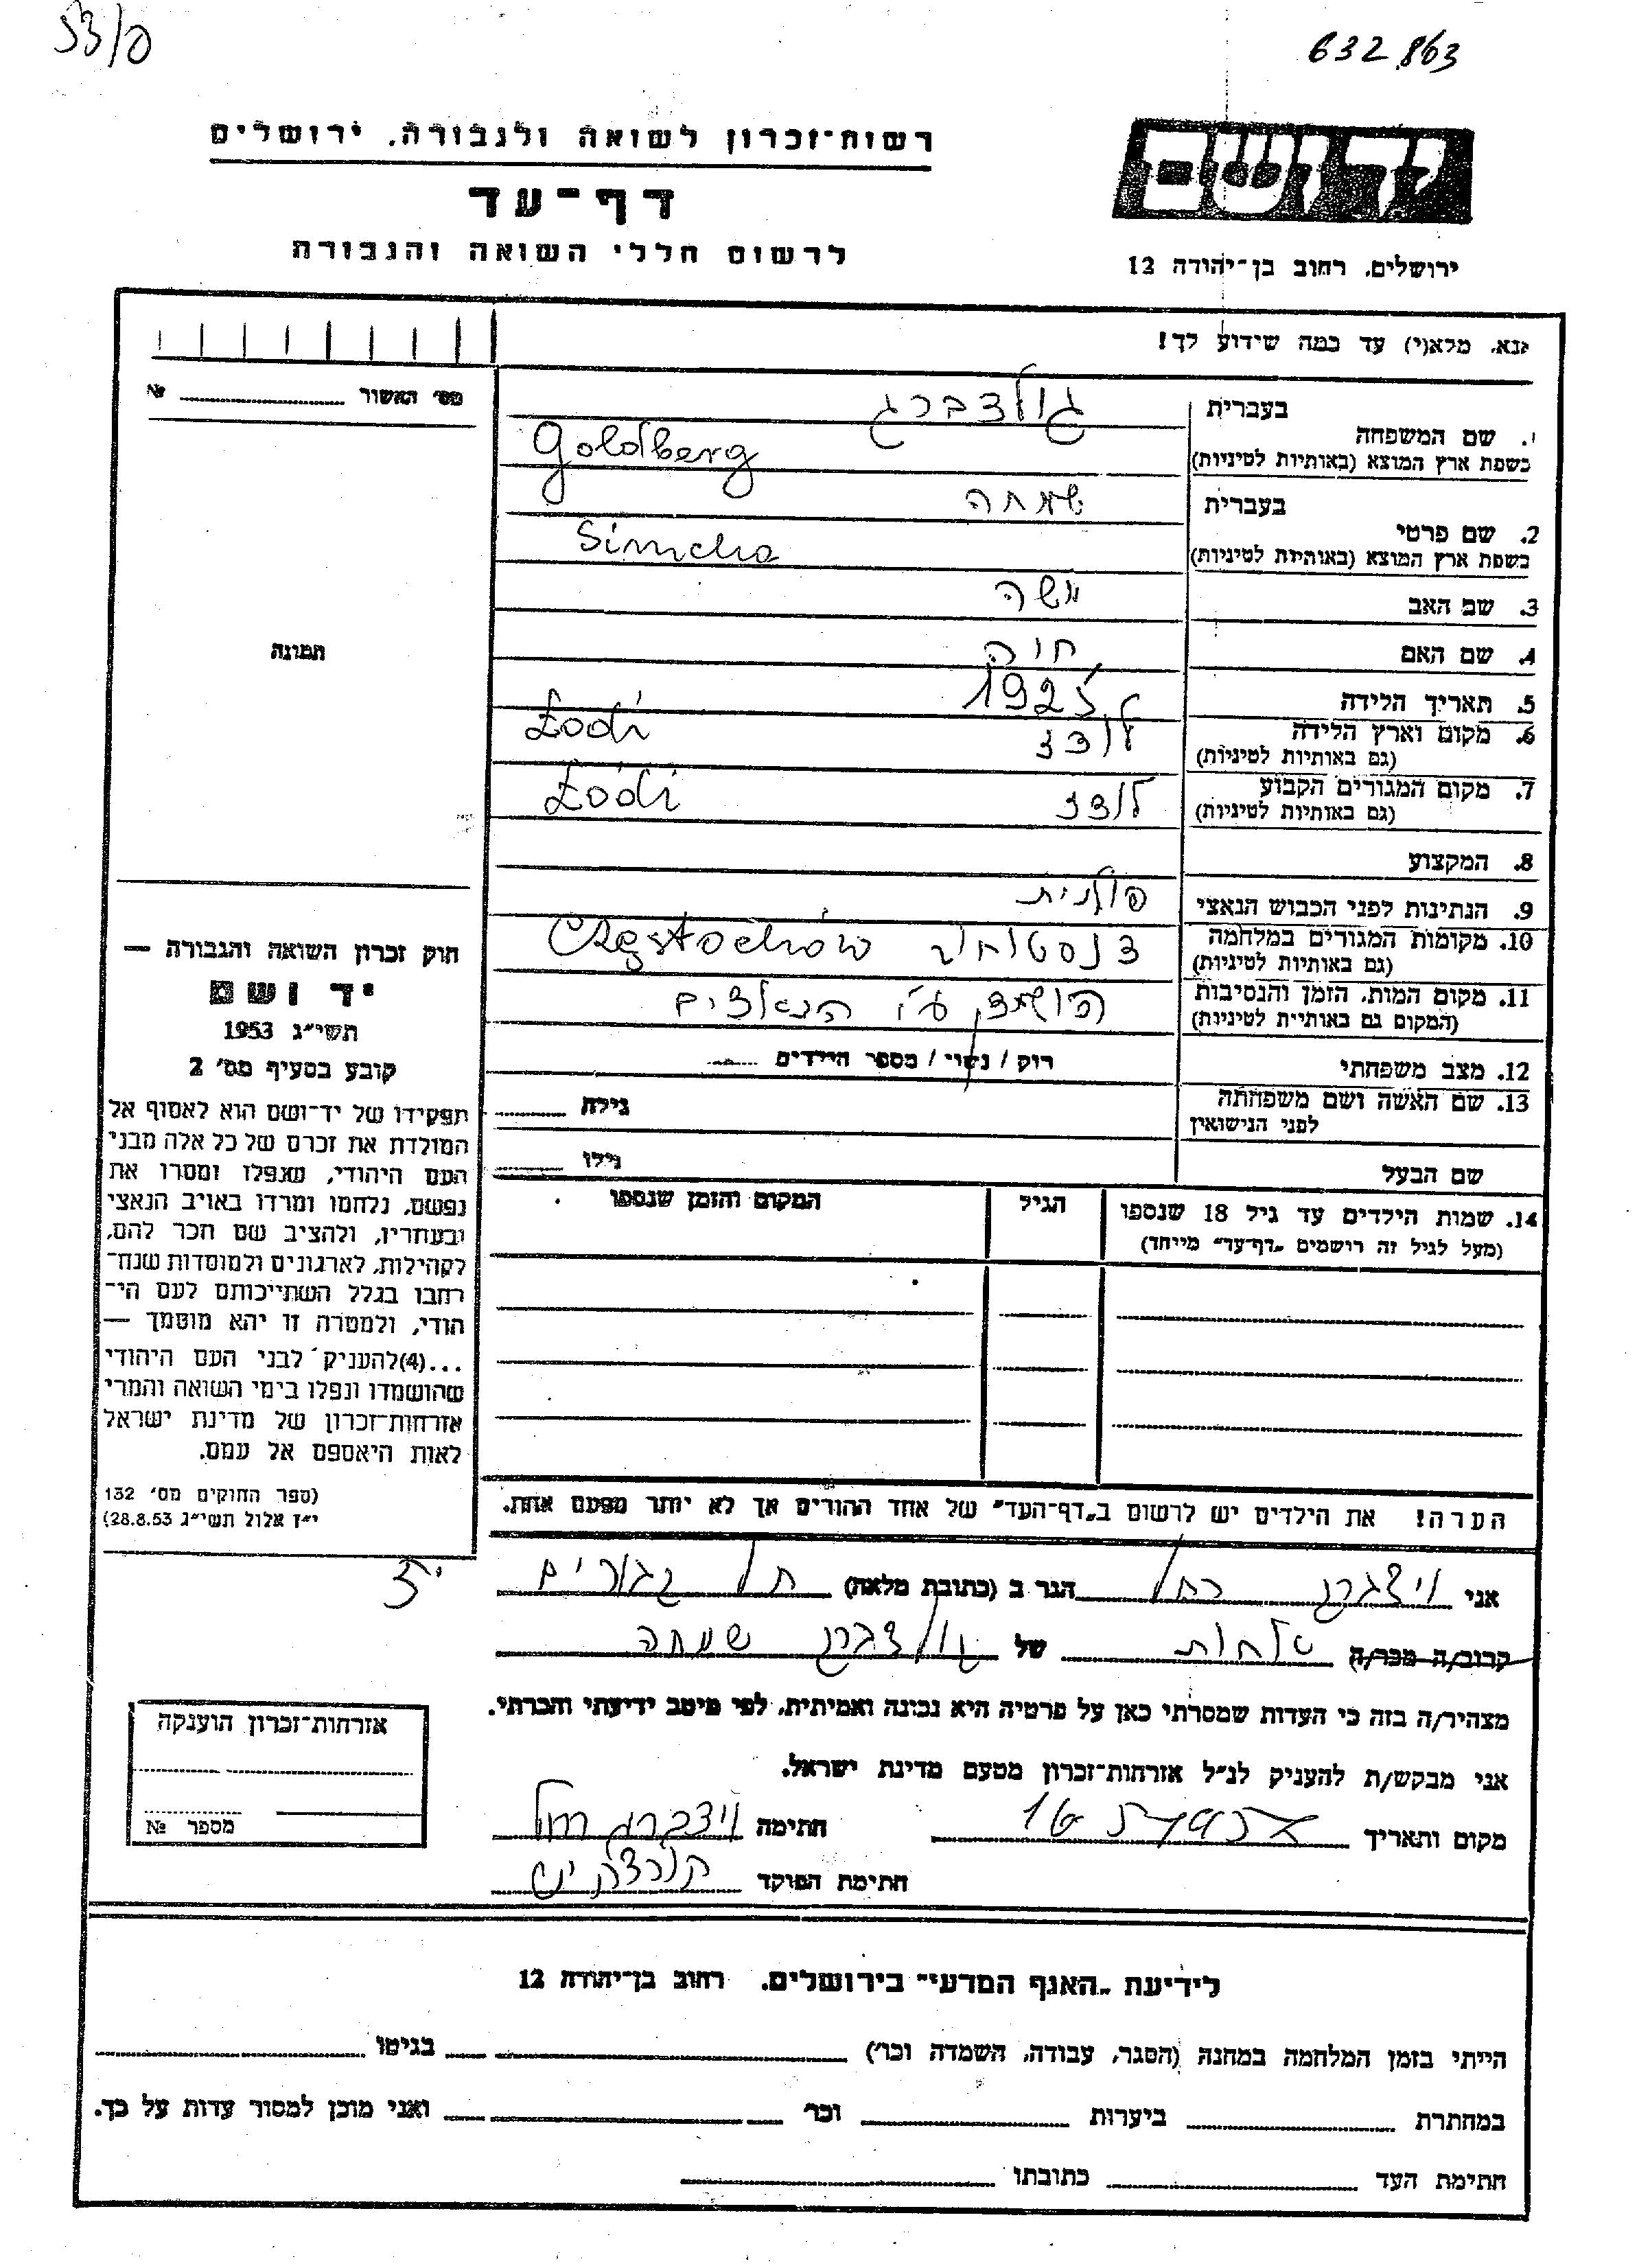 53/ס
632863
רשות־זכרון לשואה ולגבורה. ירושלים
דף־עד
לרשום חללי השואה והגבורה
יד ושם
ירושלים. רחוב בן־יהודה 12
נא. מלא(י) עד כמה שידוע לך!
מס׳ האשור № 
תמונה
בעברית גולדברג
1. שם המשפחה
בשפת ארץ המוצא (באותיות לטיניות) Goldberg
בעברית שמחה
2. שם פרטי
בשפת ארץ המוצא (באותיות לטיניות) Simcha
3. שם האב משה
4. שם האם חיה
5. תאריך הלידה 1925
6. מקום וארץ הלידה לודז Łódź
(גם באותיות לטיניות)
7. מקום המגורים הקבוע לודז Łódź
(גם באותיות לטיניות)
8. המקצוע
9. הנתינות לפני הכבוש הנאצי פולנית
10. מקומות המגורים במלחמה צנסטוחוב Częstochów
(גם באותיות לטיניות)
11. מקום המות. הזמן והנסיבות הושמד ע״י הנאצים
(המקום גם באותיות לטיניות)
12. מצב משפחתי רוק / נשוי / מספר הילדים
13. שם האשה ושם משפחתה גילה
לפני הנישואין
שם הבעל גילו
14. שמות הילדים עד גיל 18 שנספו הגיל המקום והזמן שנספו
(מעל לגיל זה רושמים „דף־עד״ מייחד)
הערה! את הילדים יש לרשום ב„דף־העד״ של אחד ההורים אך לא יותר מפעם אחת.
חוק זכרון השואה והגבורה —
יד ושם
תשי״ג 1953
קובע בסעיף מס׳ 2
תפקידו של יד־ושם הוא לאסוף אל
המולדת את זכרם של כל אלה מבני
העם היהודי, שנפלו ומסרו את
נפשם, נלחמו ומרדו באויב הנאצי
ובעוזריו, ולהציב שם וזכר להם,
לקהילות, לארגונים ולמוסדות שנח־
רבו בגלל השתייכותם לעם הי־
הודי, ולמטרה זו יהא מוסמך —
...(4)להעניק לבני העם היהודי
שהושמדו ונפלו בימי השואה והמרי
אזרחות־זכרון של מדינת ישראל
לאות היאספם אל עמם.
(ספר החוקים מס׳ 132
י״ז אלול תשי״ג 28.8.53)
אני ויצברג רחל הגר ב (כתובת מלאה) תל גבורים
קרוב/ה מכר/ה אחות של גולדברג שמחה
מצהיר/ה בזה כי העדות שמסרתי כאן על פרטיה היא נכונה ואמיתית, לפי מיטב ידיעתי והכרתי.
אני מבקש/ת להעניק לנ״ל אזרחות־זכרון מטעם מדינת ישראל.
מקום ותאריך חתימה ויצברג רחל
חתימת הפוקד
אזרחות־זכרון הוענקה
מספר №
לידיעת „האגף המדעי״ בירושלים. רחוב בן־יהודה 12
הייתי בזמן המלחמה במחנה (הסגר, עבודה, השמדה וכו׳) בגיטו
במחתרת ביערות וכו׳ ואני מוכן למסור עדות על כך.
חתימת העד כתובתו